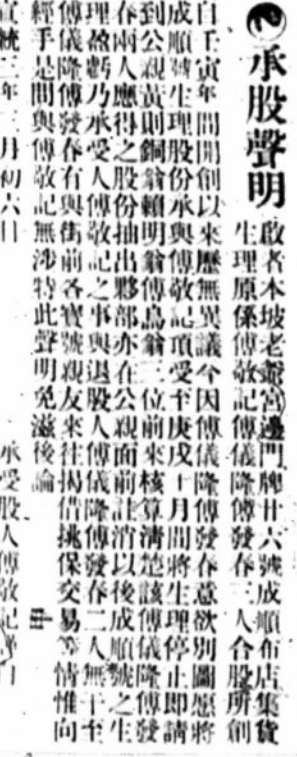 承股聲明
啟者本坡老爺宮邊門牌廿六號成順布店集貨
生理原係傅敬記傅儀隆傅發春三人合股所創
自壬寅年間開創以來歷無異議今因傅儀隆傅發春意欲別圖愿將
成順號生理股份承與傅敬記頂受至庚戌十月間將生理停止即請
到公親黃則銅翁賴明翁傅烏翁三位前來核算清楚該傅儀隆傅發
春兩人應得之股份抽出夥部亦在公親面前註消以後成順號之生
理盈虧乃承受人傅敬記之事與退股人傅儀隆傅發春二人無干至
傅儀隆傅發春有與街前各寶號親友來往揭借挑保交易等情惟向
經手是問與傅敬記無涉特此聲明免滋後論
宣統三年三月初六日 承受股人傅敬記